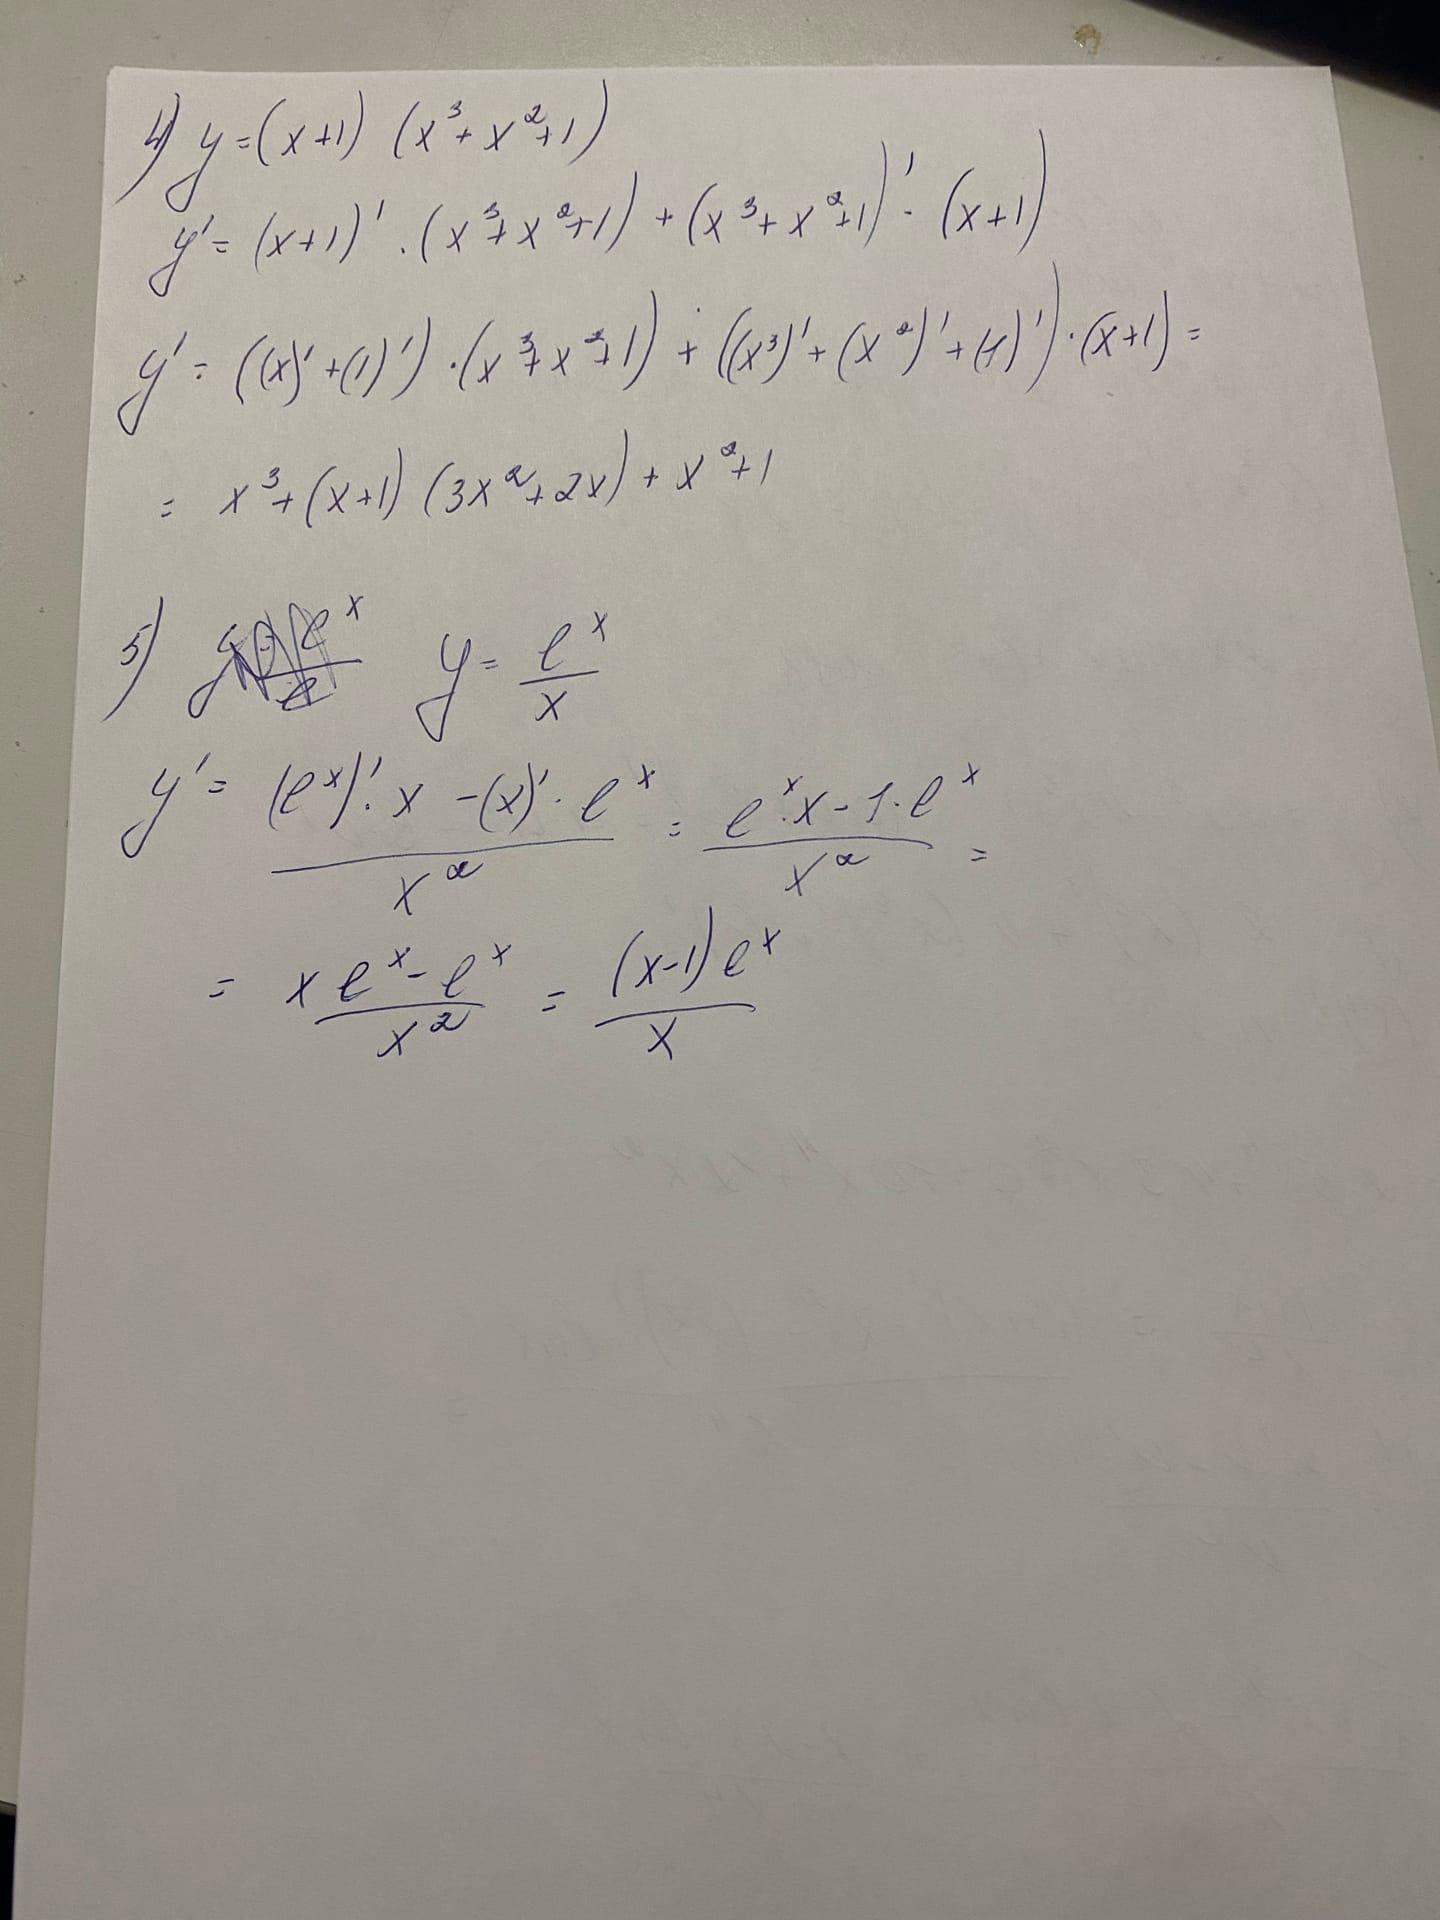 4) y=(x+1) (x³+x²+1)
y'= (x+1)' · (x³+x²+1) + (x³+x²+1)' · (x+1)
y'= ((x)'+(1)') · (x³+x²+1) + ((x³)'+(x²)'+(1)') · (x+1) =
= x³+(x+1) (3x²+2x) + x²+1
5) y = e^x/x
y' = ((e^x)' · x - (x)' · e^x)/x² = (e^x · x - 1 · e^x)/x² =
= (x e^x - e^x)/x² = ((x-1) e^x)/x